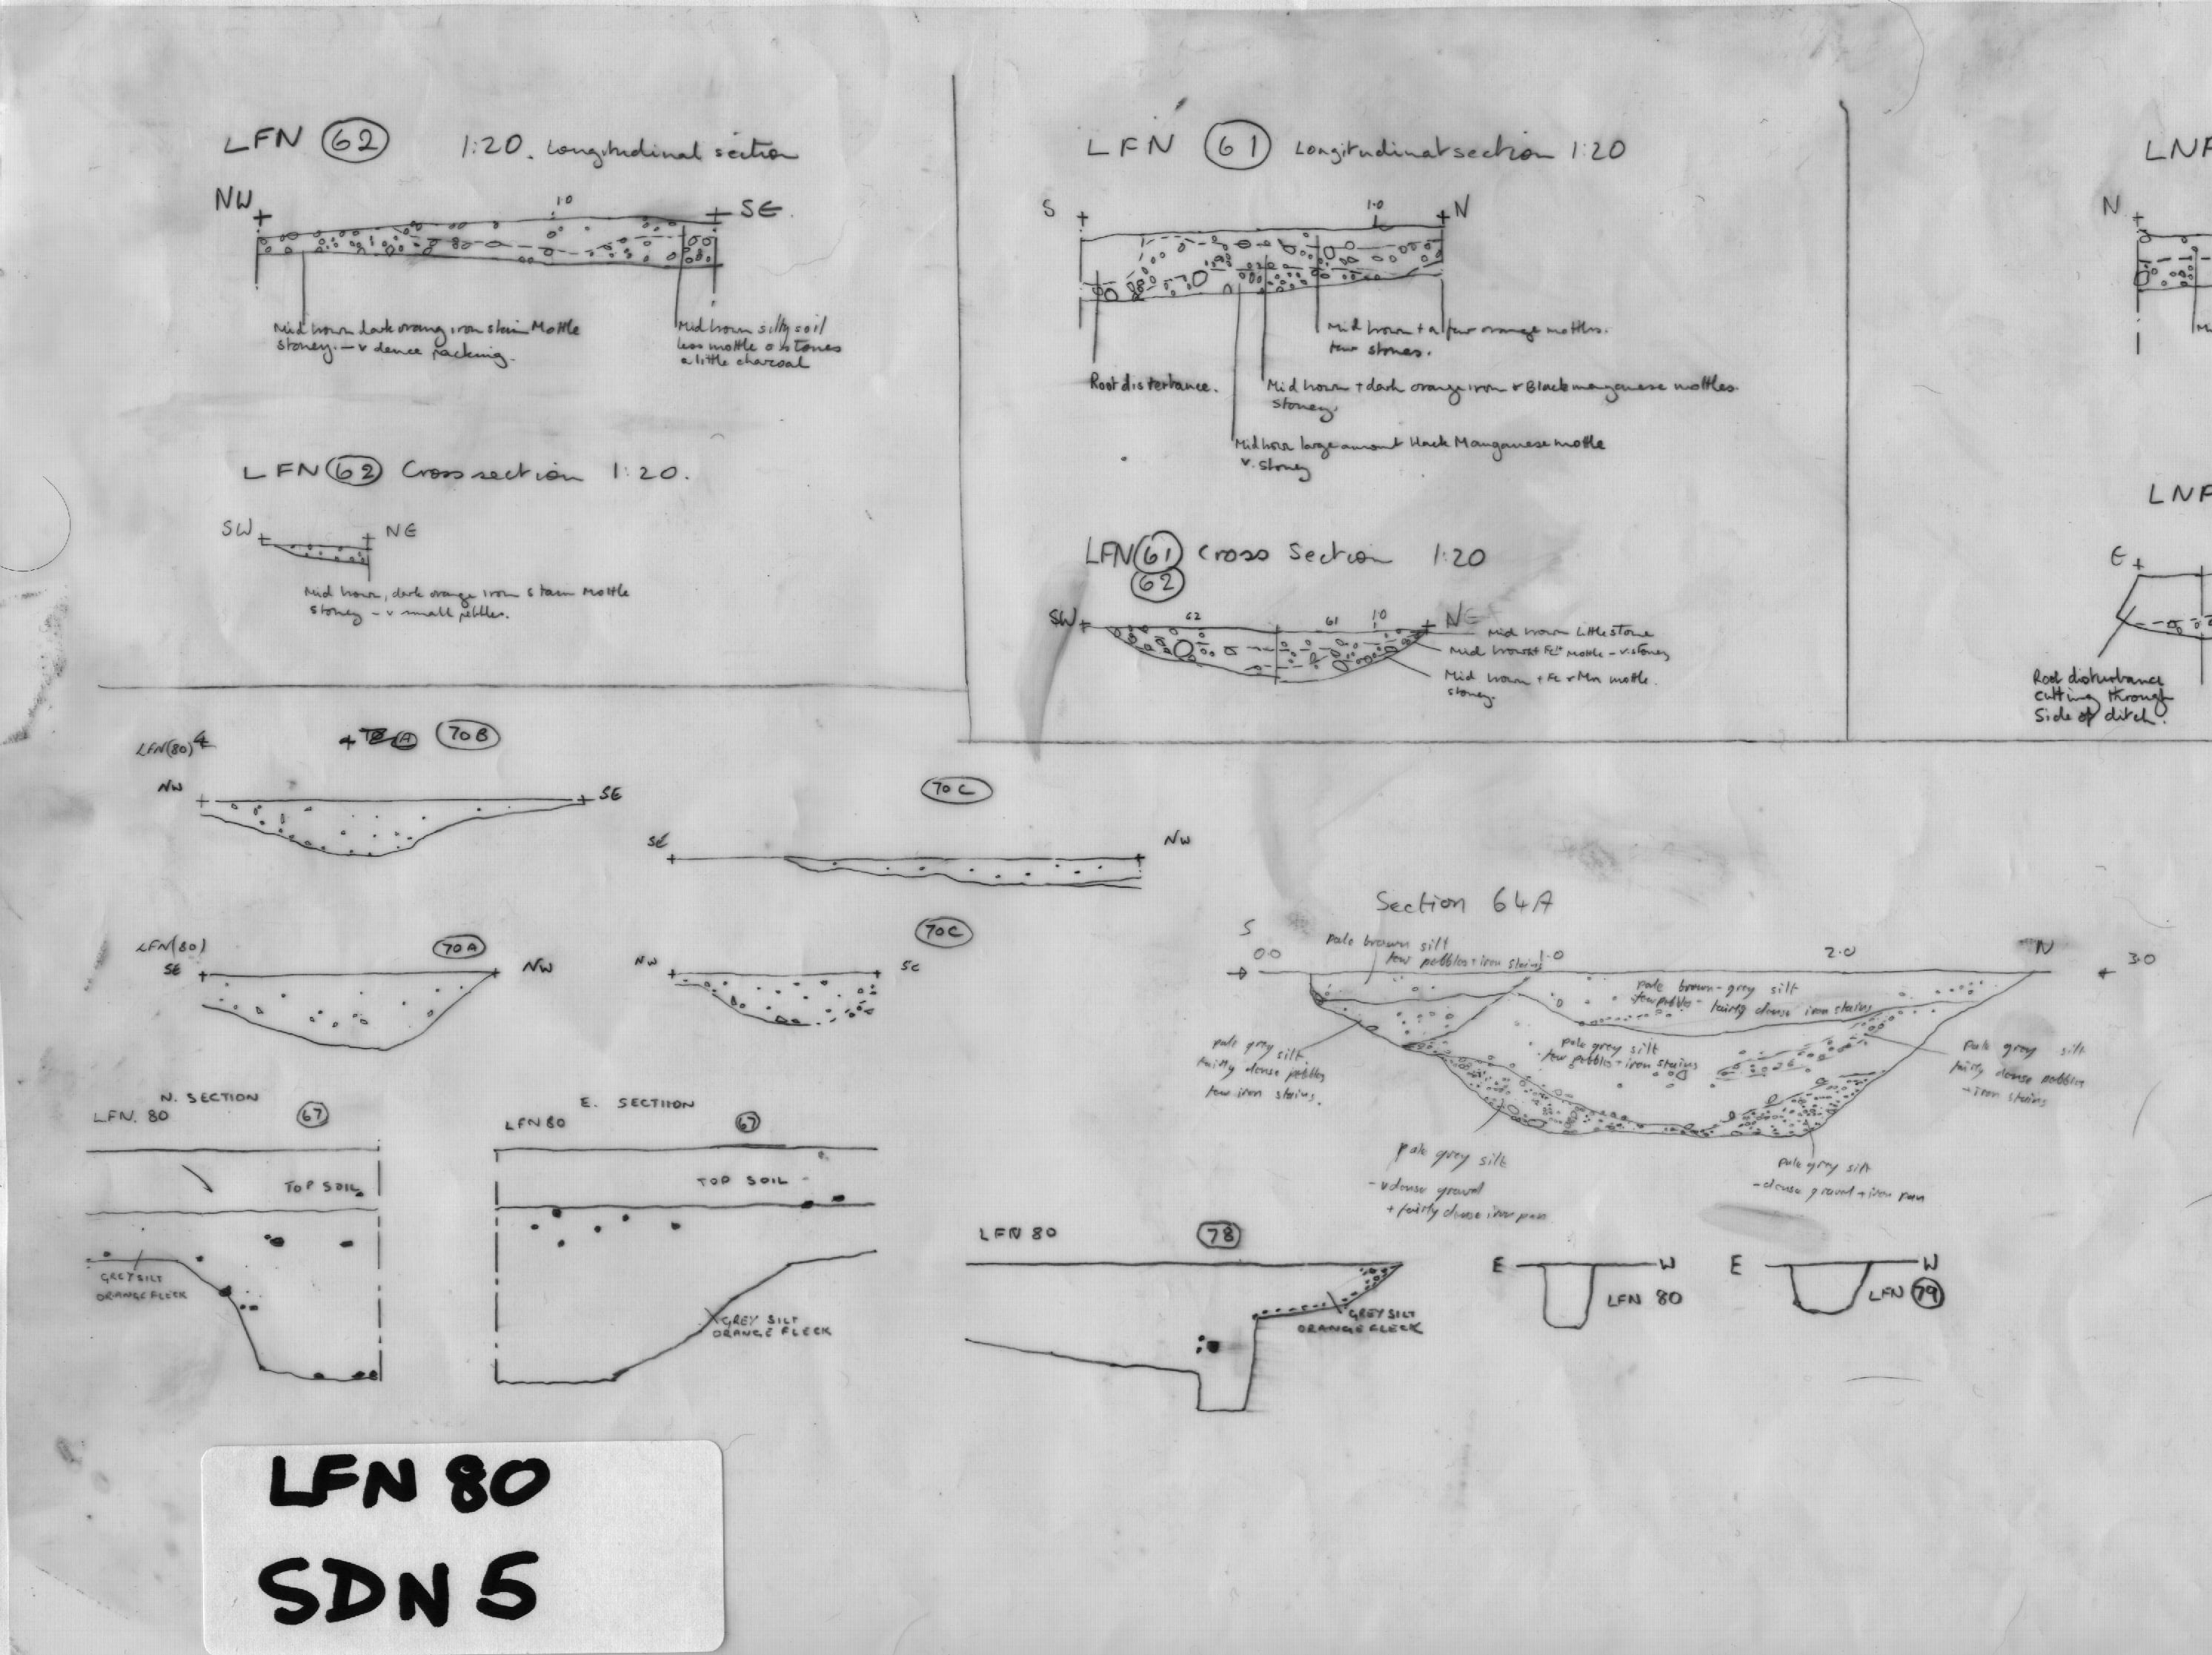 LFN 62 1:20. Longitudinal section
NW
10
SE.
Mid brown dark orang iron stain Mottle
stoney. - v dence packing.
Mid brown silty soil
less mottle & stones
a little charcoal
LFN 62 Cross section 1:20.
SW NE
Mid brown, dark orange iron stain mottle
stoney - v small pebbles.
LFN 61 Longitudinal section 1:20
S 1.0 N
Mid brown + a few orange mottles.
few stones.
Root disterbance.
Mid brown + dark orange iron + Black manganese mottles.
stoney.
Mid brown large amount black Manganese mottle
v. stoney
LFN 61 Cross Section 1:20
62
SW 62 61 10 NE
Mid brown little stone
Mid brown + Fe mottle - v. stoney
Mid brown + Fe + Mn mottle.
stoney.
LNF
N
LNF
E
Root disturbance
cutting through
side of ditch.
LFN(80) 70B
NW SE
70C
SE NW
LFN(80) 70A
SE NW
70C
NW SE
Section 64A
S N
0.0 1.0 2.0 3.0
pale brown silt
few pebbles + iron stains
pale brown-grey silt
few pebbles - fairly dense iron stains
pale grey silt
fairly dense pebbles
few iron stains.
pale grey silt
few pebbles + iron stains
pale grey silt
fairly dense pebbles
- iron stains
pale grey silt
- v dense gravel
+ fairly dense iron pan
pale grey silt
- dense gravel + iron pan
N. SECTION
LFN. 80 67
TOP SOIL
GREY SILT
ORANGE FLECK
E. SECTIION
LFN 80 67
TOP SOIL
GREY SILT
ORANGE FLECK
LFN 80 78
GREY SILT
ORANGE FLECK
E W
LFN 80
E W
LFN 79
LFN 80
SDN 5